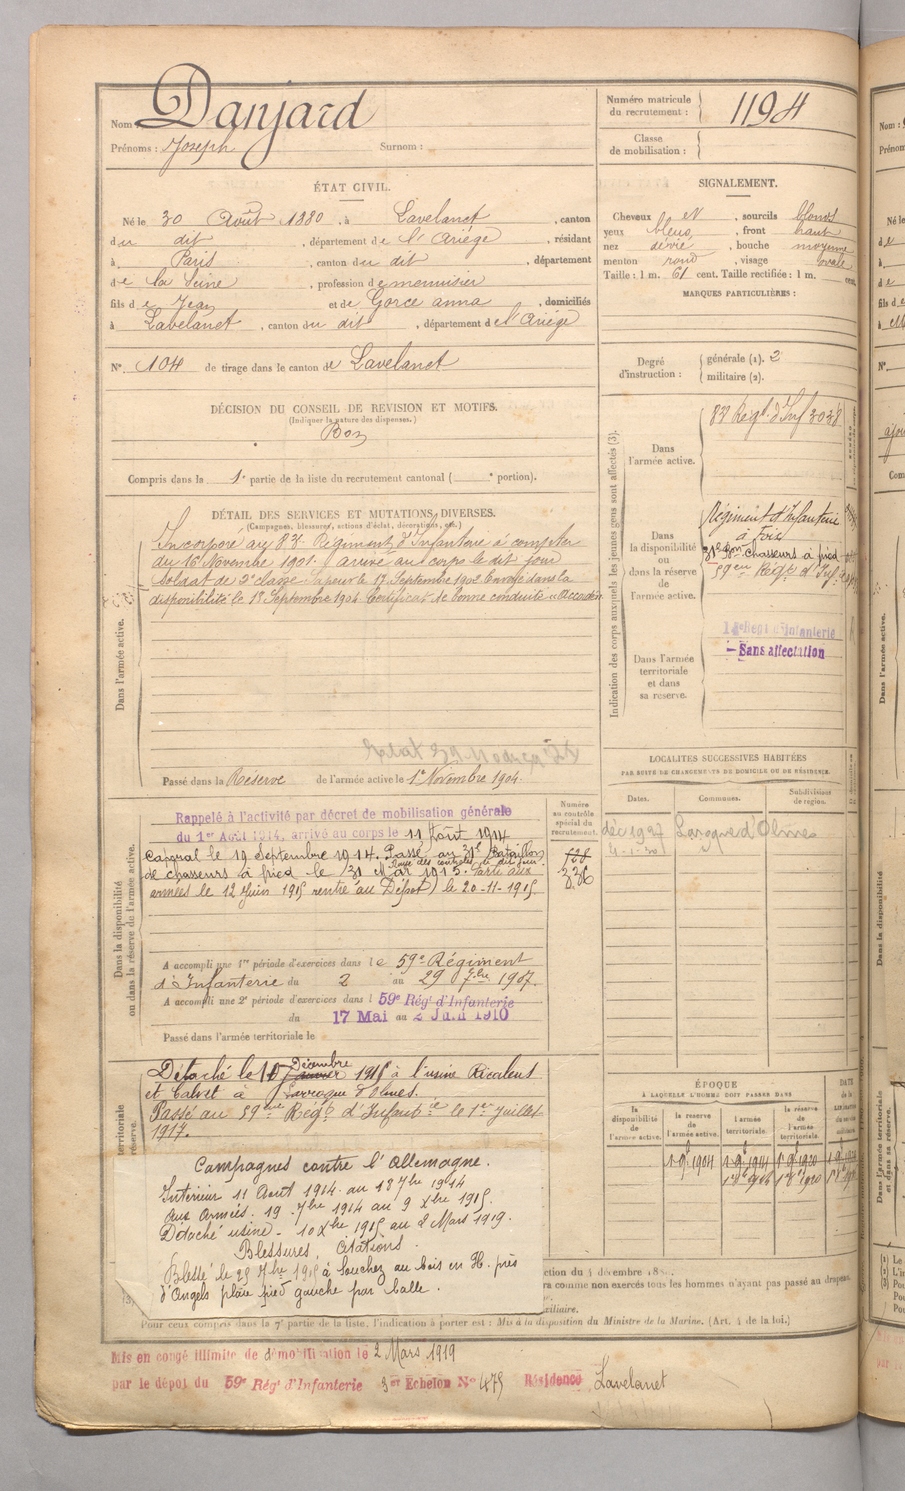 Nom : Danjard
Prénoms : Joseph Surnom :
Numéro matricule du recrutement : 1194
Classe de mobilisation :
ÉTAT CIVIL.
Né le 30 Août 1880, à Lavelanet, canton
du dit, département de l'Ariège, résidant
à Paris, canton du dit, département
de la Seine, profession de menuisier
fils de Jean et de Gorce anna, domiciliés
à Lavelanet, canton du dit, département de l'Ariège
N° 104 de tirage dans le canton de Lavelanet
SIGNALEMENT.
Cheveux et, sourcils blonds
yeux bleus, front haut
nez dévié, bouche moyenne
menton rond, visage ovale
Taille : 1 m. 61 cent. Taille rectifiée : 1 m. cent.
MARQUES PARTICULIÈRES :
Degré d'instruction : générale (1). 2
militaire (2).
DÉCISION DU CONSEIL DE REVISION ET MOTIFS.
(Indiquer la nature des dispenses.)
Bon
Compris dans la 1e partie de la liste du recrutement cantonal ( e portion).
DÉTAIL DES SERVICES ET MUTATIONS DIVERSES.
(Campagnes, blessures, actions d'éclat, décorations, etc.)
Dans l'armée active.
Incorporé au 83e Régiment d'Infanterie à compter
du 16 Novembre 1901. arrivé au corps le dit jour
soldat de 2e classe. Sapeur le 17 Septembre 1902 Envoyé dans la
disponibilité le 18 Septembre 1904. Certificat de bonne conduite "Accordé"
Passé dans la Réserve de l'armée active le 1er Novembre 1904.
Indication des corps auxquels les jeunes gens sont affectés (3).
Dans l'armée active.
83e Régt d'Inf 3038
Dans la disponibilité ou dans la réserve de l'armée active.
Régiment d'Infanterie
à Foix
31e Bon Chasseurs à pied
59eme Régt d'Inf
Dans l'armée territoriale et dans sa réserve.
Régt d'Infanterie
– Sans affectation
LOCALITÉS SUCCESSIVES HABITÉES
PAR SUITE DE CHANGEMENTS DE DOMICILE OU DE RÉSIDENCE.
Dates. Communes. Subdivisions de région.
déc 1927 Laroque d'Olmes
4-1-30
Dans la disponibilité ou dans la réserve de l'armée active.
Numéro au contrôle spécial du recrutement.
Rappelé à l'activité par décret de mobilisation générale
du 1er Août 1914, arrivé au corps le 11 Août 1914
Caporal le 19 Septembre 1914. Passé au 31e Bataillon
de chasseurs à pied le 31 Mar 1915. Parti aux
armées le 12 Juin 1915 rentré au Dépôt le 20-11-1915
336
A accompli une 1re période d'exercices dans le 59e Régiment
d'Infanterie du 2 au 29 7bre 1907.
A accompli une 2e période d'exercices dans l 59e Régt d'Infanterie
du 17 Mai au 2 Juin 1910
Passé dans l'armée territoriale le
Détaché le 10 Décembre 1915 à l'usine Ricalens
et Calvet à Laroque d'Olmes.
Passé au 59eme Régt d'Infantie le 1er Juillet
1917.
ÉPOQUE
À LAQUELLE L'HOMME DOIT PASSER DANS
la disponibilité de l'armée active. la réserve de l'armée active. l'armée territoriale. la réserve de l'armée territoriale.
Campagnes contre l'Allemagne.
Intérieur 11 Août 1914 au 18 7bre 1914
Aux Armées. 19 7bre 1914 au 9 Xbre 1915.
Détaché usine – 10 Xbre 1915 au 2 Mars 1919.
Blessures, Citations.
Blessé le 25 7bre 1915 à Souchez au bois en H. près
d'Angels plaie pied gauche par balle.
ction du 4 décembre
ra comme non exercés tous les hommes n'ayant pas passé au drapeau
xiliaire.
Pour ceux compris dans la 7e partie de la liste, l'indication à porter est : Mis à la disposition du Ministre de la Marine. (Art. 4 de la loi.)
Mis en congé illimité de démobilisation le 2 Mars 1919
par le dépôt du 59e Régt d'Infanterie 3er Echelon N° 475 Résidence Lavelanet